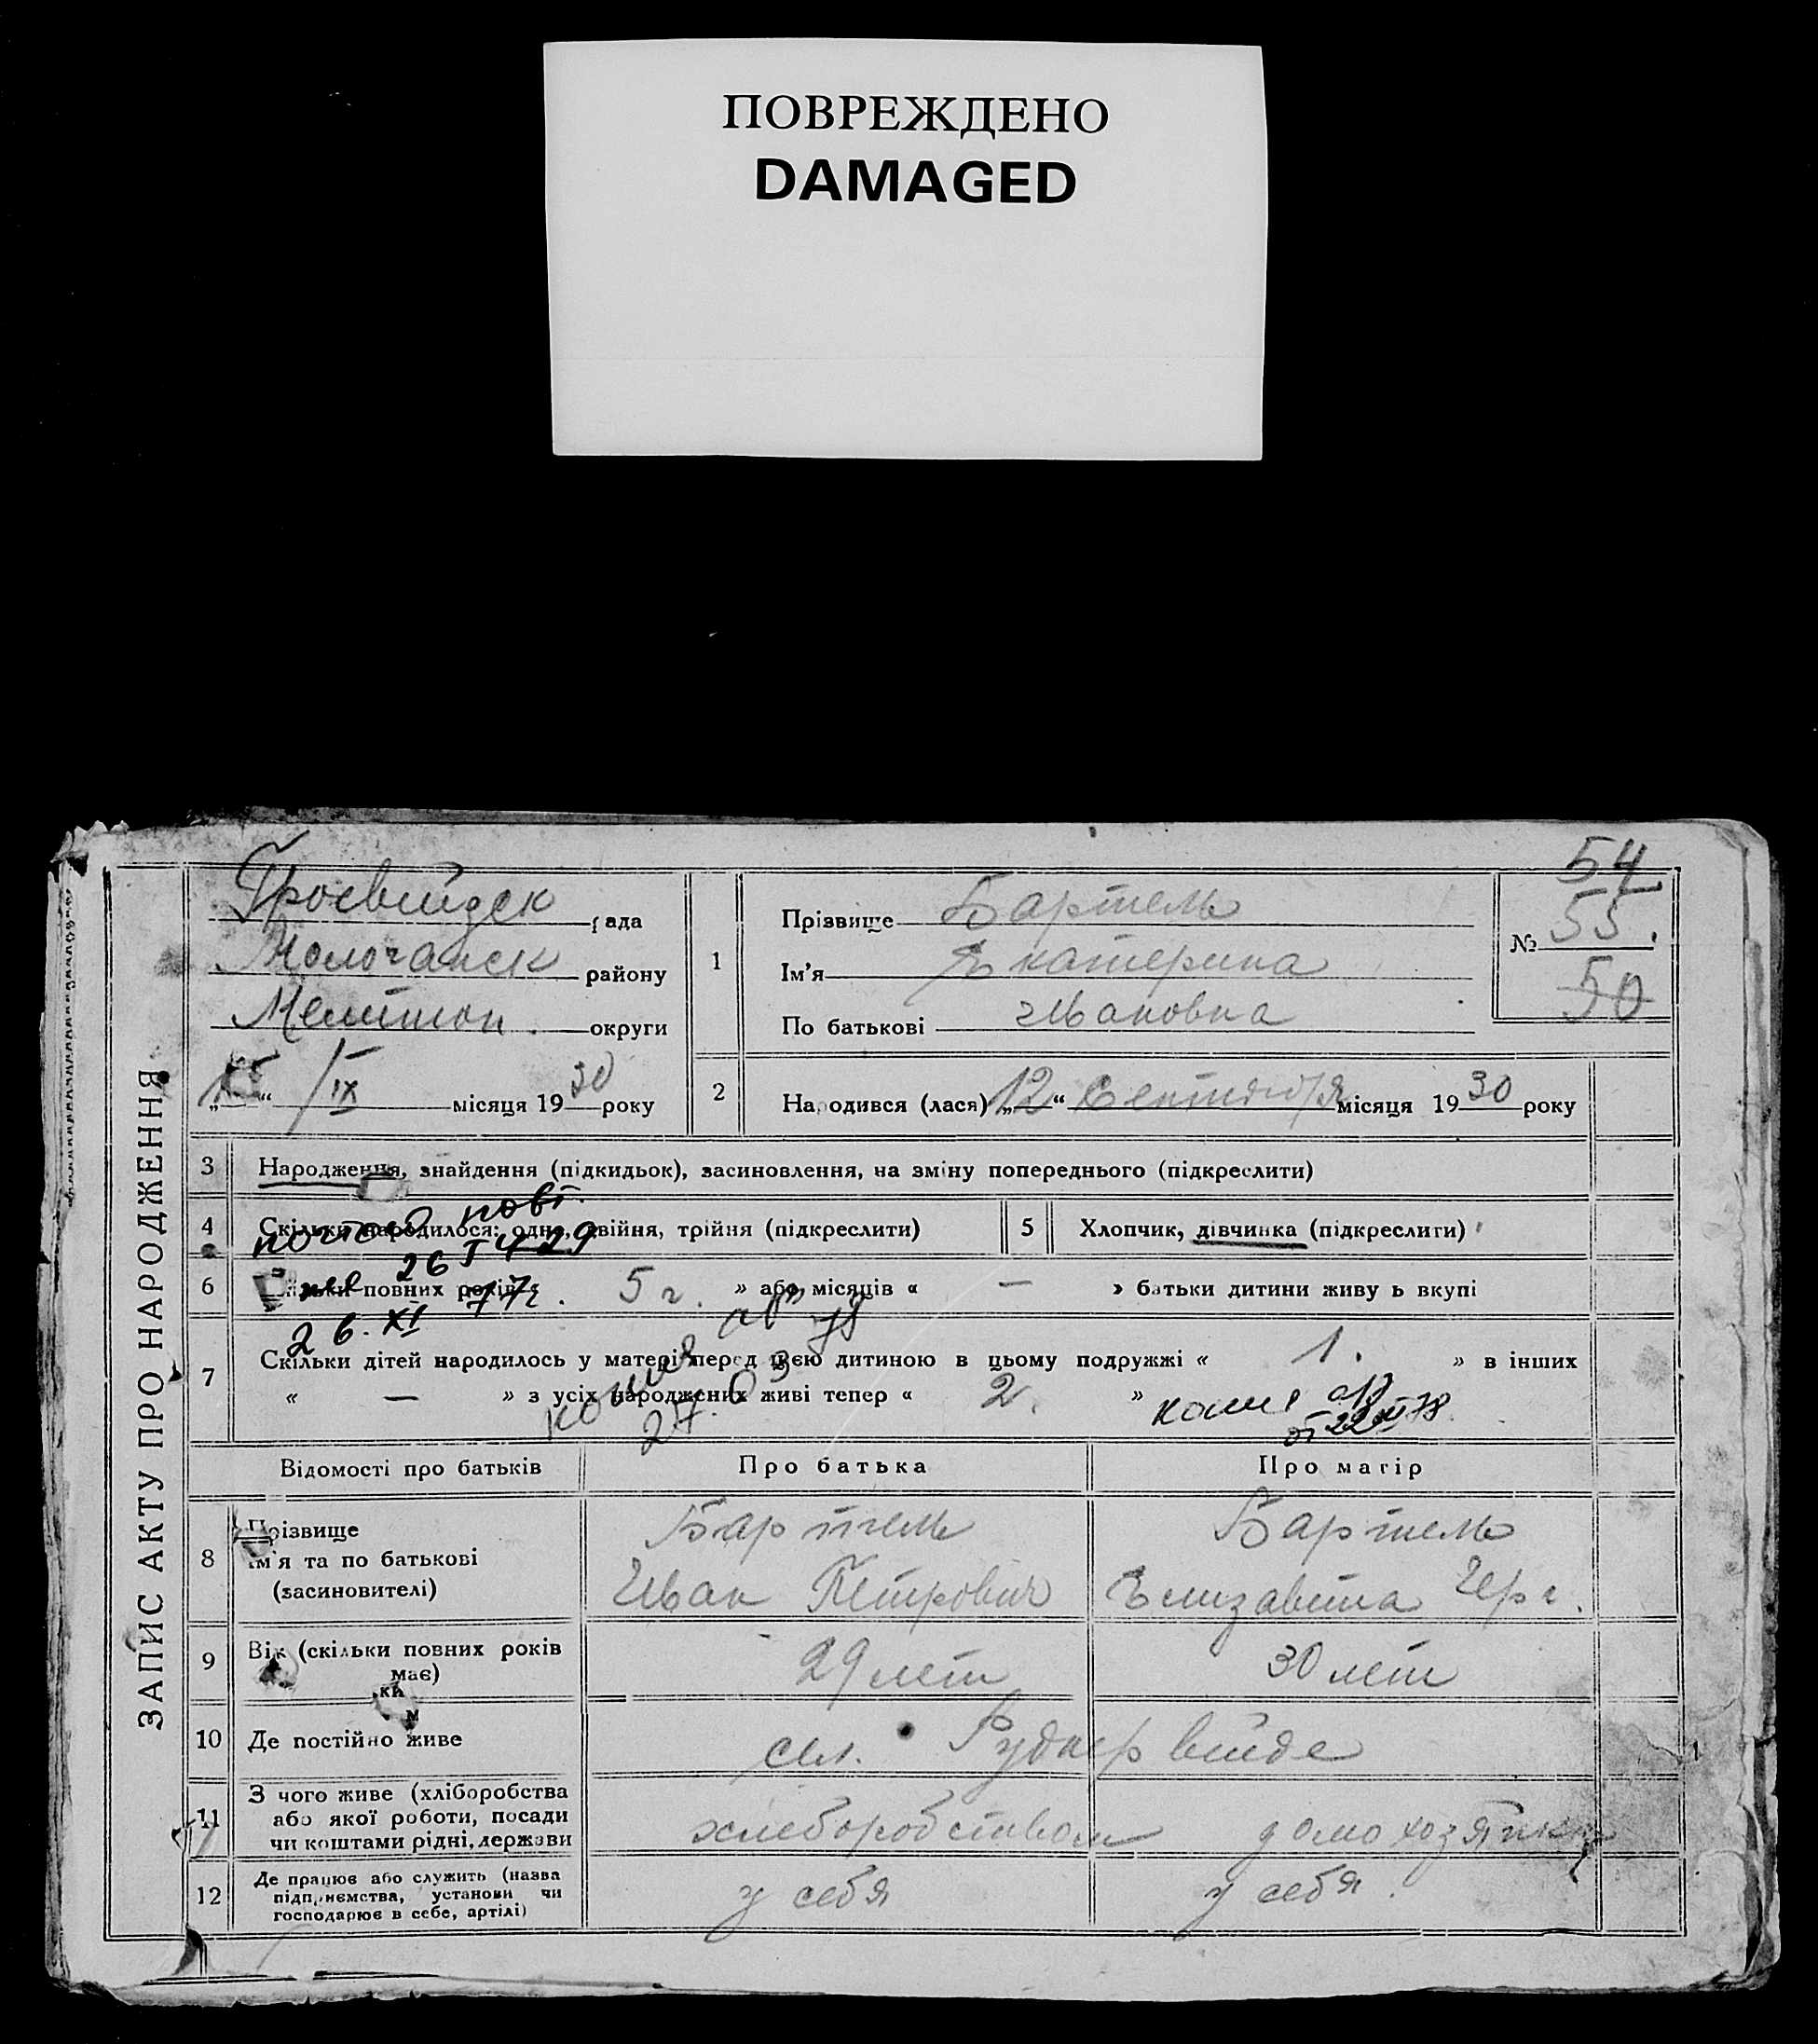 ПОВРЕЖДЕНО
DAMAGED
54
Гросвейдск рада
Молочанск району
Мелітоп. округи
IX місяця 1930 року
1
Прізвище Бартель
Ім'я Екатерина
По батькові Ивановна
№ 55.
50
2
Народився (лася) „12“ Сентября місяця 1930 року
ЗАПИС АКТУ ПРО НАРОДЖЕННЯ
3 Народження, знайдення (підкидьок), засиновлення, на зміну попереднього (підкреслити)
повт.
4 Скільки народилося: одно, двійня, трійня (підкреслити)
5 Хлопчик, дівчинка (підкреслити)
6 повних років 5 г. » або місяців « — » батьки дитини живу ь вкупі
26. XI 77г.
7 Скільки дітей народилось у матері перед цією дитиною в цьому подружжі « 1. » в інших
« — » з усіх народжених живі тепер « 2. »
копия
27.03
копия
от 22 78
Відомості про батьків
Про батька
Про матір
8 Прізвище
Ім'я та по батькові
(засиновителі)
Бартель
Иван Петрович
Бартель
Елизавета
9 Вік (скільки повних років
має)
29 лет
30 лет
ки
м
10 Де постійно живе
сел. Руднервейде
11 З чого живе (хліборобства
або якої роботи, посади
чи коштами рідні, держави
хлеборобством
домохозяйка
12 Де працює або служить (назва
підприємства, установи чи
господарює в себе, артілі)
у себя
у себя.